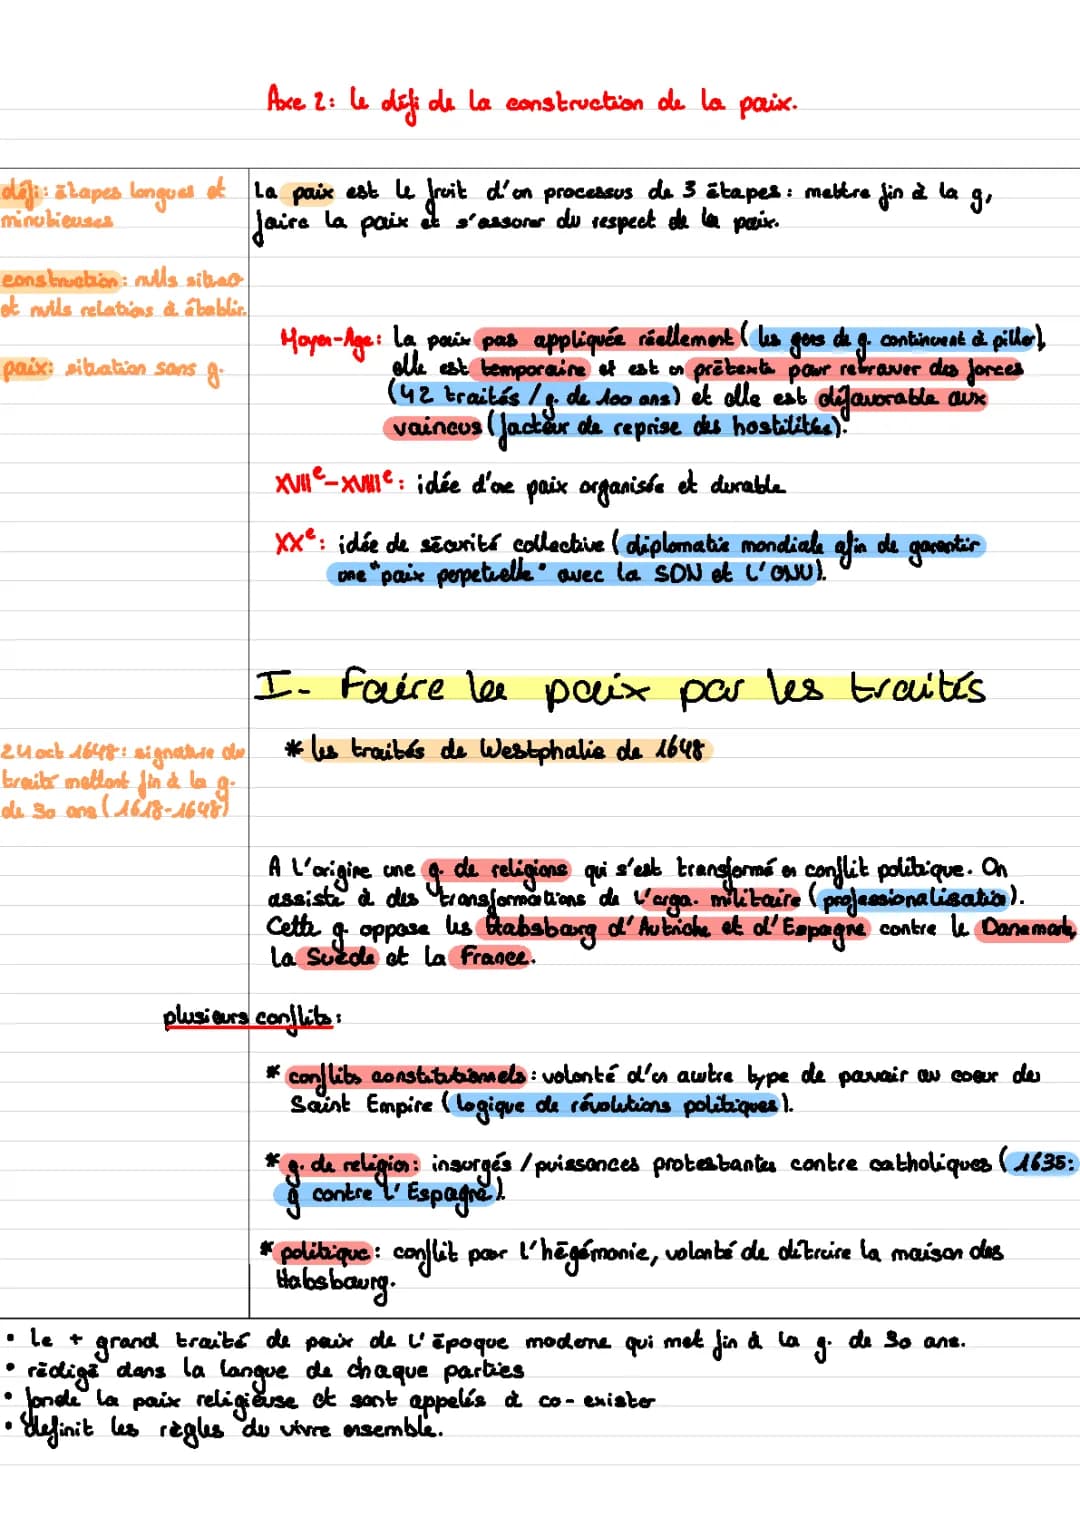 Axe 2: le défi de la construction de la paix.
défi: étapes longues et
minutieuses
La paix est le fruit d'un processus de 3 étapes: mettre fin à la g,
faire la paix et s'assurer du respect de la paix.
construction: nvlls situa°
et nvlls relations à établir.
paix: situation sans g.
Moyen-Age: la paix pas appliquée réellement (les gens de g. continuent à piller),
elle est temporaire et est un prétexte pour retrouver des forces
(42 traités / g. de 100 ans) et elle est défavorable aux
vaincus (facteur de reprise des hostilités).
XVIIe-XVIIIe: idée d'une paix organisée et durable
XXe: idée de sécurité collective (diplomatie mondiale afin de garantir
une "paix perpetuelle" avec la SDN et l'ONU).
I- Faire la paix par les traités
24 oct 1648: signature du
traité mettant fin à la g.
de 30 ans (1618-1648)
* les traités de Westphalie de 1648
A l'origine une g. de religions qui s'est transformé en conflit politique. On
assiste à des transformations de l'orga. militaire (professionalisation).
Cette g. oppose les Habsbourg d'Autriche et d'Espagne contre le Danemark,
la Suède et la France.
plusieurs conflits:
* conflits constitutionnels: volonté d'un autre type de pouvoir au coeur du
Saint Empire (logique de révolutions politiques).
* g. de religion: insurgés / puissances protestantes contre catholiques (1635:
g contre l'Espagne).
* politique: conflit pour l'hégémonie, volonté de détruire la maison des
Habsbourg.
• Le + grand traité de paix de l'époque moderne qui met fin à la g. de 30 ans.
• rédigé dans la langue de chaque parties
• fonde la paix religieuse et sont appelés à co-exister
• définit les règles du vivre ensemble.